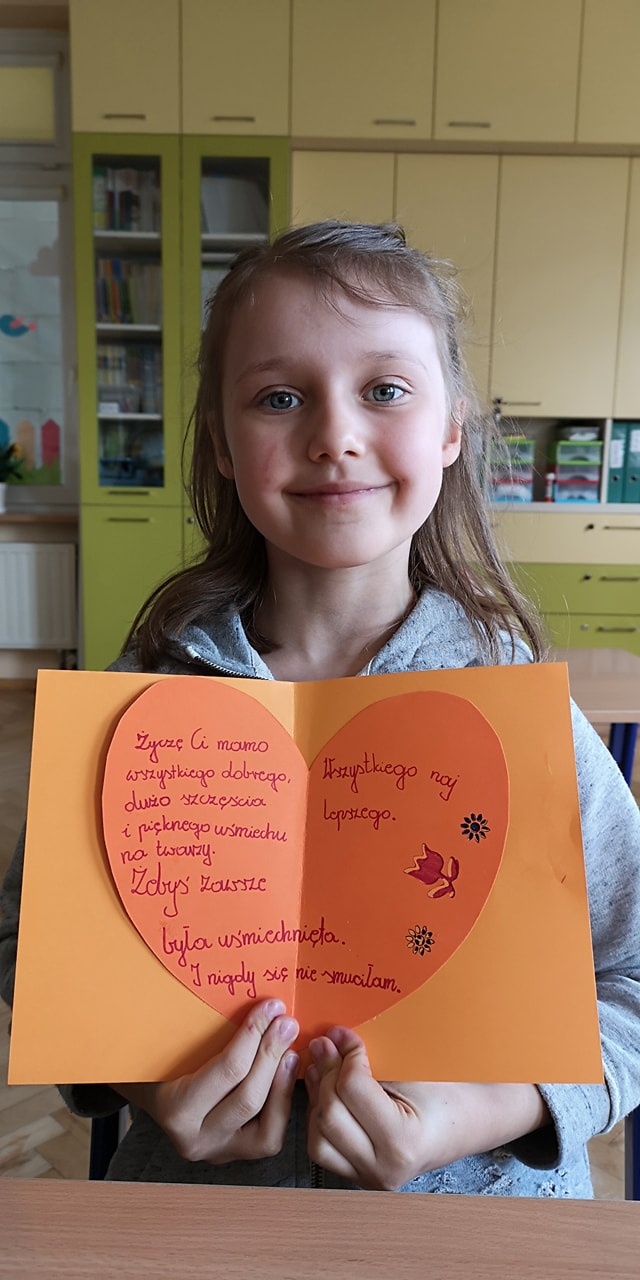 Życzę Ci mamo
wszystkiego dobrego,
dużo szczęścia
i pięknego uśmiechu
na twarzy.
Żebyś zawsze
była uśmiechnięta.
I nigdy się nie smuciłam.
Wszystkiego naj
lepszego.